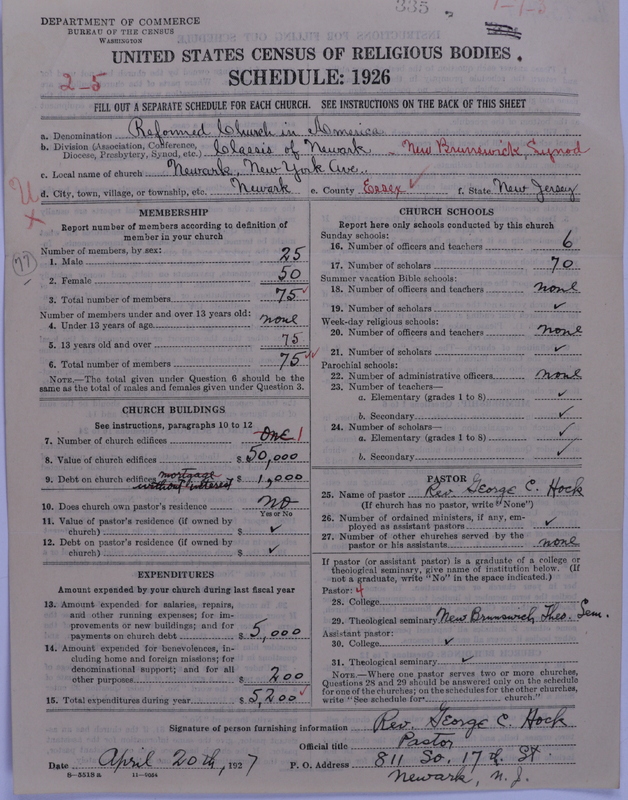 335
1-1-3
DEPARTMENT OF COMMERCE
BUREAU OF THE CENSUS
WASHINGTON
UNITED STATES CENSUS OF RELIGIOUS BODIES
SCHEDULE: 1926
2-5
FILL OUT A SEPARATE SCHEDULE FOR EACH CHURCH. SEE INSTRUCTIONS ON THE BACK OF THIS SHEET
a. Denomination Reformed Church in America
b. Division (Association, Conference, Diocese, Presbytery, Synod, etc.) Classis of Newark - New Brunswick, Synod
c. Local name of church Newark, New York Ave.
d. City, town, village, or township, etc. Newark e. County Essex ✓ f. State New Jersey
U
X
77
MEMBERSHIP
Report number of members according to definition of
member in your church
Number of members, by sex:
1. Male 25
2. Female 50
3. Total number of members 75 ✓
Number of members under and over 13 years old:
4. Under 13 years of age none
5. 13 years old and over 75
6. Total number of members 75 ✓✓
NOTE.—The total given under Question 6 should be the
same as the total of males and females given under Question 3.
CHURCH BUILDINGS
See instructions, paragraphs 10 to 12
7. Number of church edifices One 1
8. Value of church edifices $ 50,000
9. Debt on church edifices mortgage $ 1,000
without interest
10. Does church own pastor's residence no
Yes or No
11. Value of pastor's residence (if owned by
church) $ ✓
12. Debt on pastor's residence (if owned by
church) $ ✓
EXPENDITURES
Amount expended by your church during last fiscal year
13. Amount expended for salaries, repairs,
and other running expenses; for im-
provements or new buildings; and for
payments on church debt $ 5,000
14. Amount expended for benevolences, in-
cluding home and foreign missions; for
denominational support; and for all
other purposes $ 200
15. Total expenditures during year $ 5,200 ✓
CHURCH SCHOOLS
Report here only schools conducted by this church
Sunday schools:
16. Number of officers and teachers 6
17. Number of scholars 70
Summer vacation Bible schools:
18. Number of officers and teachers none
19. Number of scholars ✓
Week-day religious schools:
20. Number of officers and teachers none
21. Number of scholars ✓
Parochial schools:
22. Number of administrative officers none
23. Number of teachers—
a. Elementary (grades 1 to 8) ✓
b. Secondary ✓
24. Number of scholars—
a. Elementary (grades 1 to 8) ✓
b. Secondary ✓
PASTOR
25. Name of pastor Rev. George C. Hock
(If church has no pastor, write "None")
26. Number of ordained ministers, if any, em-
ployed as assistant pastors ✓
27. Number of other churches served by the
pastor or his assistants none
If pastor (or assistant pastor) is a graduate of a college or
theological seminary, give name of institution below. (If
not a graduate, write "No" in the space indicated.)
Pastor: 4
28. College
29. Theological seminary New Brunswick Theo. Sem.
Assistant pastor:
30. College ✓
31. Theological seminary ✓
NOTE.—Where one pastor serves two or more churches,
Questions 28 and 29 should be answered only on the schedule
for one of the churches; on the schedules for the other churches,
write "See schedule for church."
Signature of person furnishing information Rev. George C. Hock
Official title Pastor
Date April 20th, 1927 P. O. Address 811 So. 17th St.
Newark, N. J.
8—5518 a 11—9054